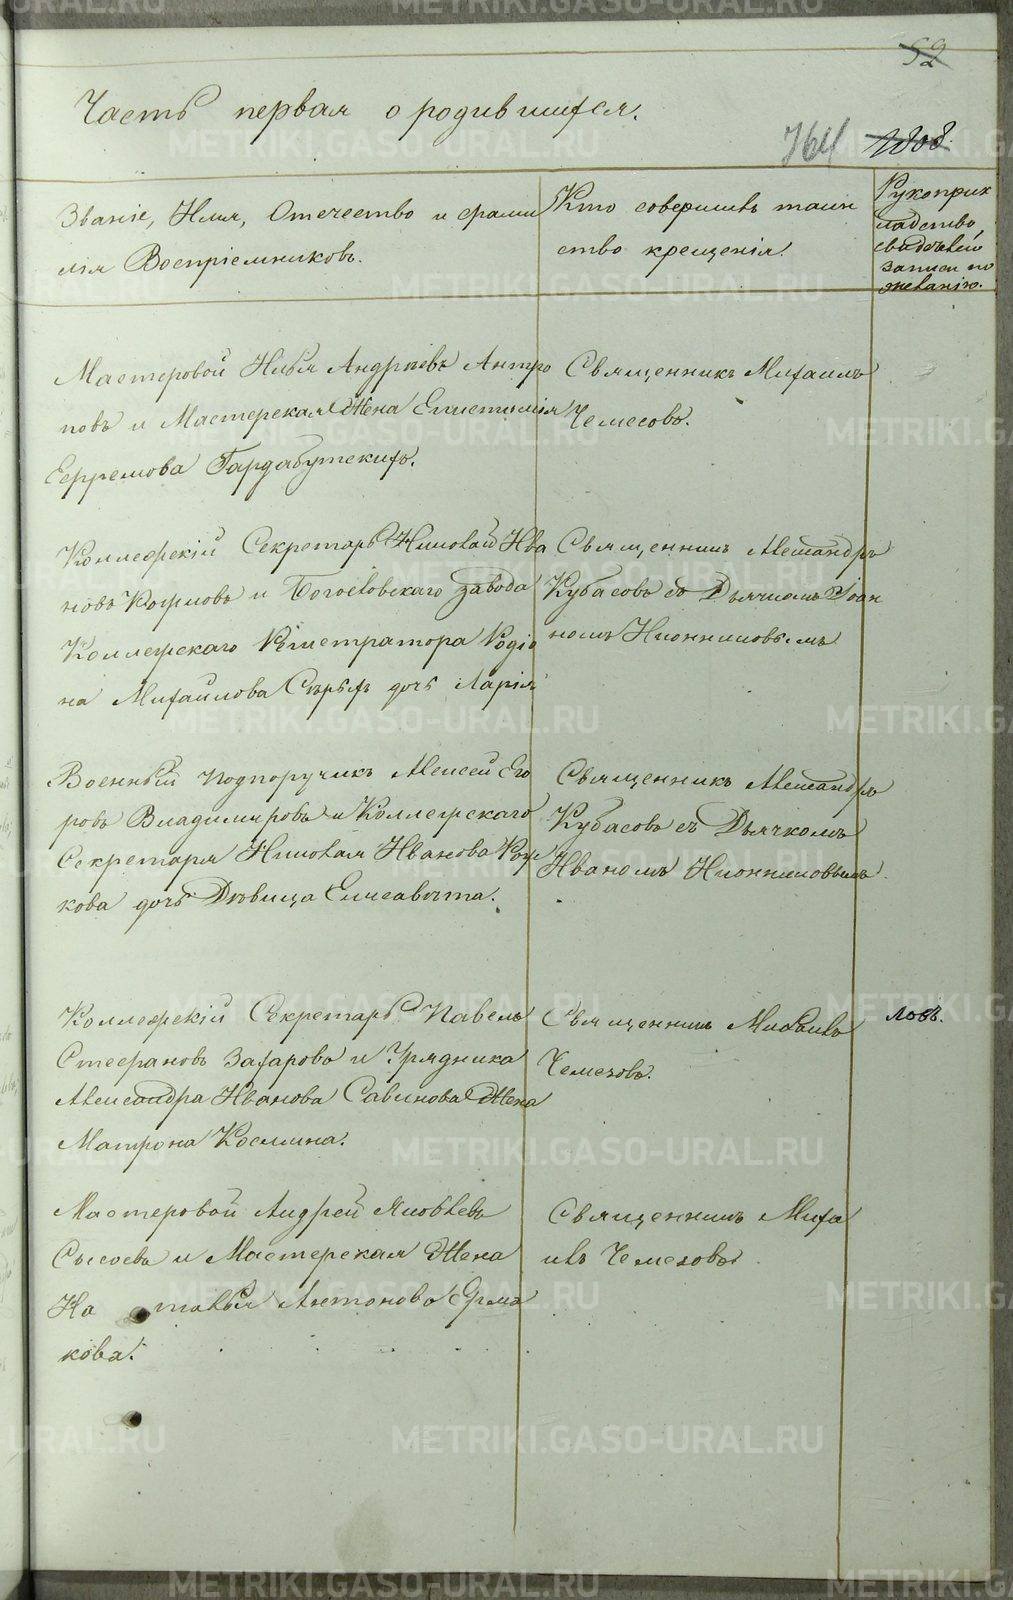 52
Часть первая о родившихся.
764
Званіе, Имя, Отечество и фами
лія Воспріемниковъ.
Кто совершилъ таин
ство крещенія.
Рукоприк
ладство
свидѣтелей
записи по
желанію.
Мастеровой Илья Андреевъ Антро
повъ и Мастерская Жена Епистимія
Ефремова Гардабутскихъ.
Священникъ Михаилъ
Чемесовъ.
Коллежскій Секретарь Николай Ива
новъ и Богословскаго завода
Коллежскаго Регистратора Родіо
на Михайлова дочь
Священникъ Александръ
Кубасовъ съ Дьячкомъ Іоан
номъ
Военный подпоручикъ Алексей Его
ровъ Владимировъ и Коллежскаго
Секретаря Николая Иванова
кова дочь Дѣвица Елисавета.
Священникъ Александръ
Кубасовъ съ Дьячкомъ
Иваномъ
Коллежскій Секретарь Павелъ
Стефановъ Захаровъ и Урядника
Александра Иванова Савинова Жена
Матрона Космина.
Священникъ Михаилъ
Чемезовъ.
Мастеровой Андрей Яковлевъ
Сысоевъ и Мастерская Жена
На талья Антонова Ерма
кова.
Священникъ Миха
илъ Чемезовъ
METRIKI.GASO-URAL.RU